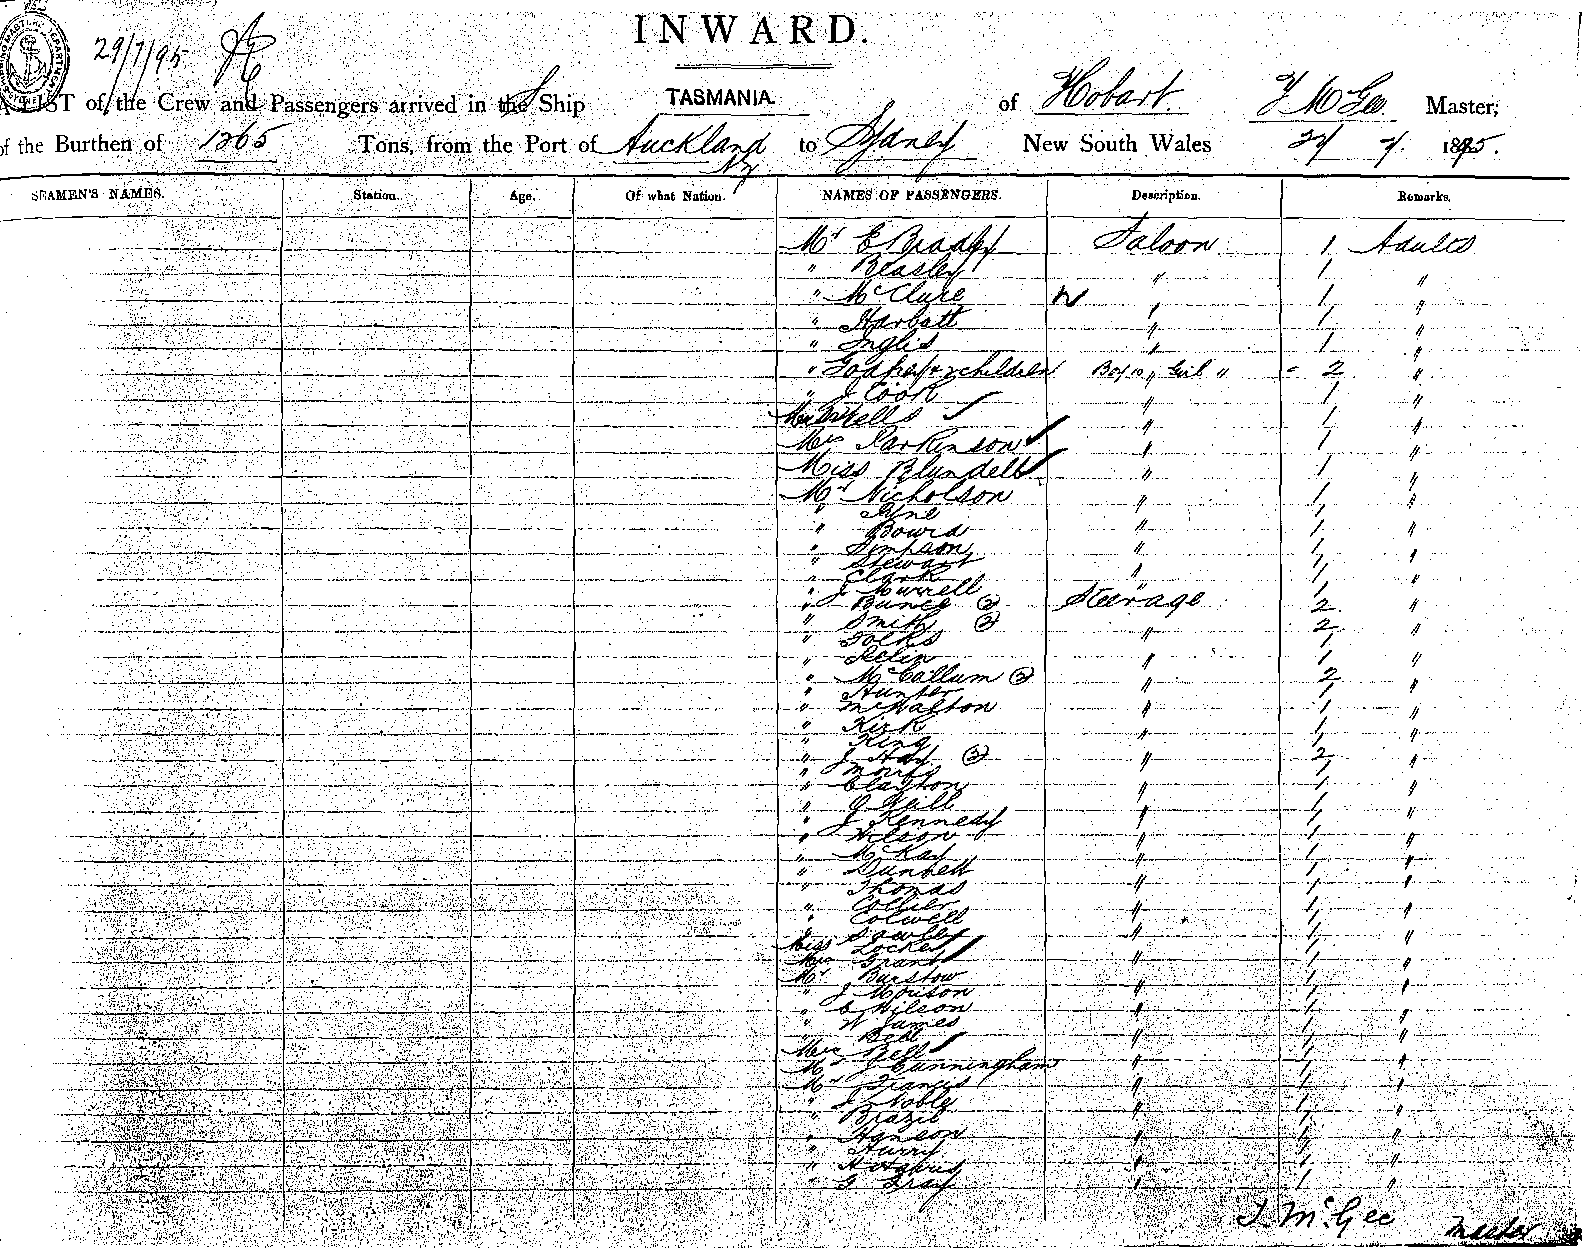 INWARD.
29/7/95
A LIST of the Crew and Passengers arrived in the Ship TASMANIA of Hobart. T McGee Master,
of the Burthen of 1265 Tons, from the Port of Auckland NZ to Sydney New South Wales 1895.
SEAMEN'S NAMES. Station. Age. Of what Nation. NAMES OF PASSENGERS. Description. Remarks.
Mr E Bradley Saloon 1 Adults
" Beasley " 1 "
" McClure " 1 "
" Harbott " 1 "
" Inglis " 1 "
" & 2 children Boy " Girl " = 2 "
" J Cook " 1 "
Wells " 1 "
Mrs Parkinson " 1 "
Miss Blundell " 1 "
Mr Nicholson " 1 "
" Lyne " 1 "
" Bowra " 1 "
" Simpson " 1 "
" Stewart " 1 "
" Clark " 1 "
" J Murrell " 1 "
" Bunce (2) Steerage 2 "
" Smith (2) 2 "
" Folks " 1 "
" 1 "
" McCallum (2) " 2 "
" Hunter 1 "
" McWalton " 1 "
" Kirk 1 "
" King " 1 "
" J Hay (2) " 2 "
" Morris 1
" Clayton " 1 "
" J Neill 1 "
" J Kennedy " 1 "
" Wilson " 1 "
" McKay " 1 "
" " 1 "
" Thomas " 1 "
" Collier " 1 "
" Colwell " 1 "
" Sowley " 1 "
Miss Locket 1
Mrs Grant " 1 "
Mr Burstow 1
" J Morison " 1 "
" C Wilson " 1 "
" W James " 1 "
Bell " 1 "
Mrs Bell 1
Mr J Cunningham " 1 "
Mr Francis " 1 "
" J Nobly " 1 "
" Brazil " 1
" " 1 "
" Hurry " 1 "
" H Harris " 1 "
" G Gray " 1 "
T. McGee Master